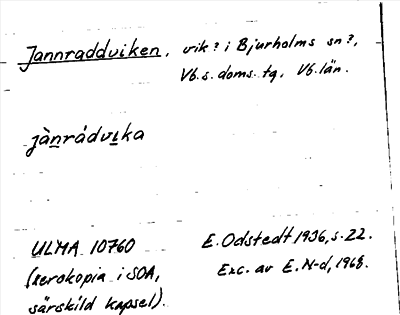 Jannradduiken, vik? i Bjurholms sn?,
Vb.s.doms.tg, Vb.län.
jànrádvıka
ULMA 10760
(xerokopia i SOA,
särskild kapsel).
E. Odstedt 1936, s. 22.
Exc. av E. N-d, 1968.